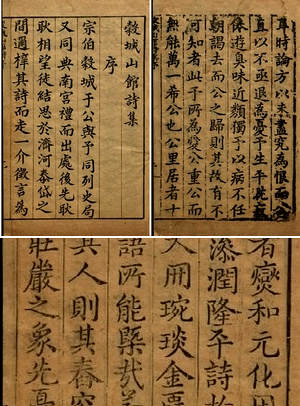 穀城山館詩集
序
宗伯穀城于公與予同列史局
又同典南宮禮而出處後先耿
耿相望徒結思於濟河泰岱之
間適梓其詩而走一介徵言為
耳時論方以未盡究為恨而公
直以不亟退為憂予生平
遊臭味近類獨予以病不任
朝謁去而公之歸則其故有不
可知者此予所為愛公重公而
無能萬一希公也公里居者十
者燮和元化用
添潤隆平詩
人冊琬琰金
語所能槩哉
其人則其舂容
莊嚴之象先